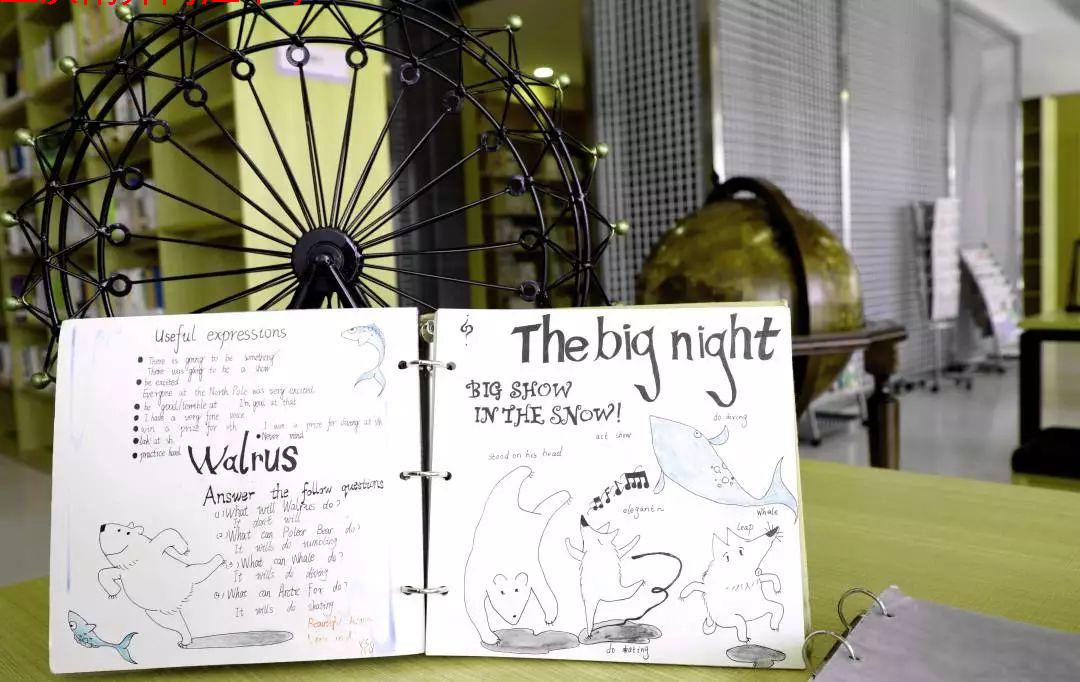 Useful expressions
There is going to be something
There was going to be a show
be excited
Everyone at the North Pole was very excited.
be good/terrible at I'm good at that
I have a very fine voice
win a prize for sth I won a prize for diving at sth
Never mind
look at sth.
practice hard
Walrus
Answer the follow questions
(1) What will Walrus do?
It don't will
(2) What can Polear Bear do?
It wills do
(3) What can Whale do?
It wills do diving
(4) What can Arctic Fox do?
It wills do skating
Beautiful
The big night
BIG SHOW
IN THE SNOW!
do diving
act show
stand on his head
elegant
whale
leap
do skating